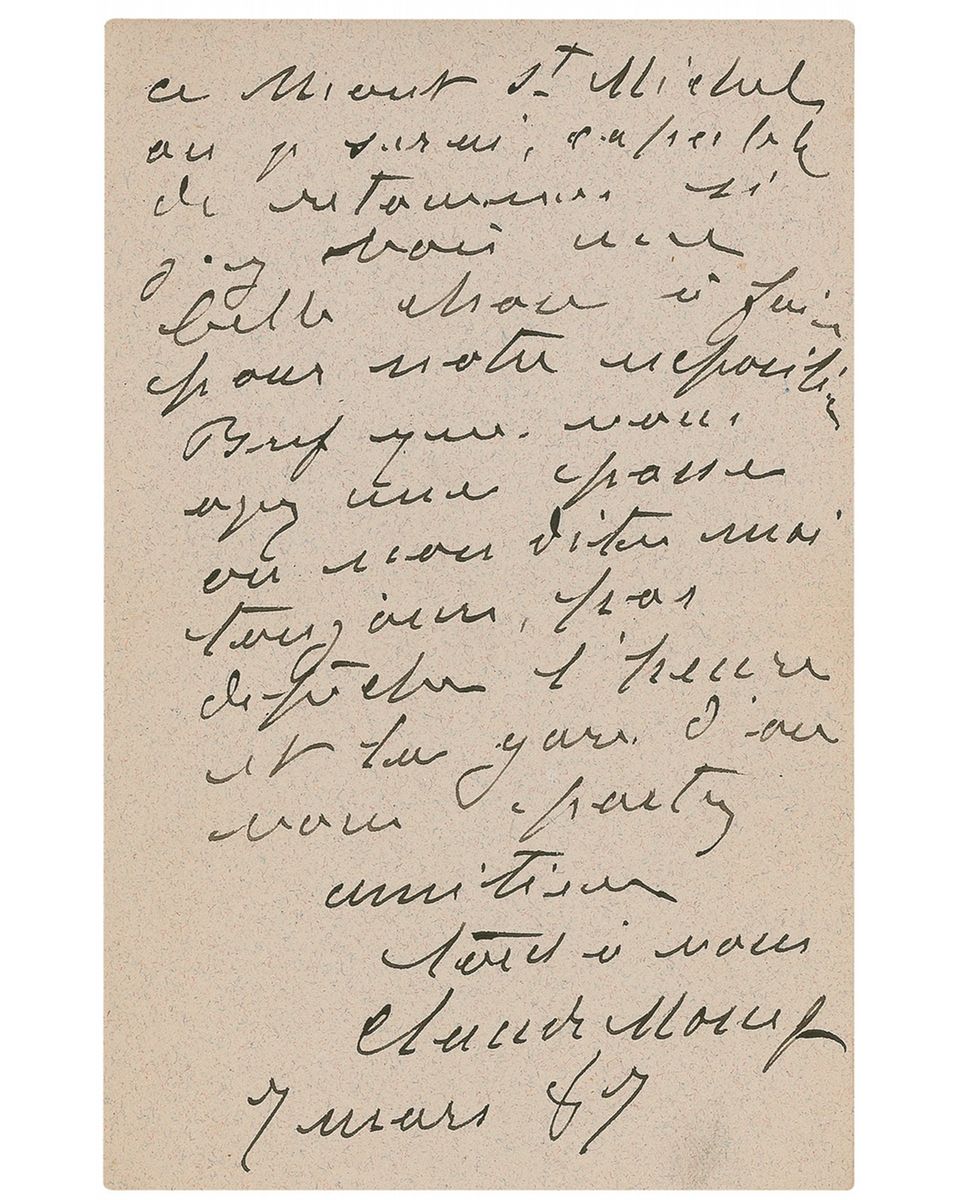 ce Mont St Michel
ou je serais capable
de retourner si
j'y vois une
belle chose à faire
pour notre exposition
Bref que vous
ayez une passe
ou non dites moi
toujours par
dépêche l'heure
et la gare d'où
vous partez
amitiés
tout à vous
Claude Monet
7 mars 87